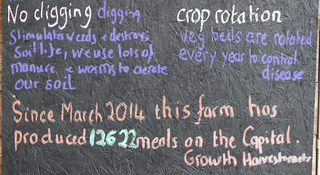 No digging digging
stimulates weeds & destroys
soil life, we use lots of
manure & worms to aerate
our soil
crop rotation
veg beds are rotated
every year to control
disease
Since March 2014 this farm has
produced 12622 meals on the Capital.
Growth Harvestometer